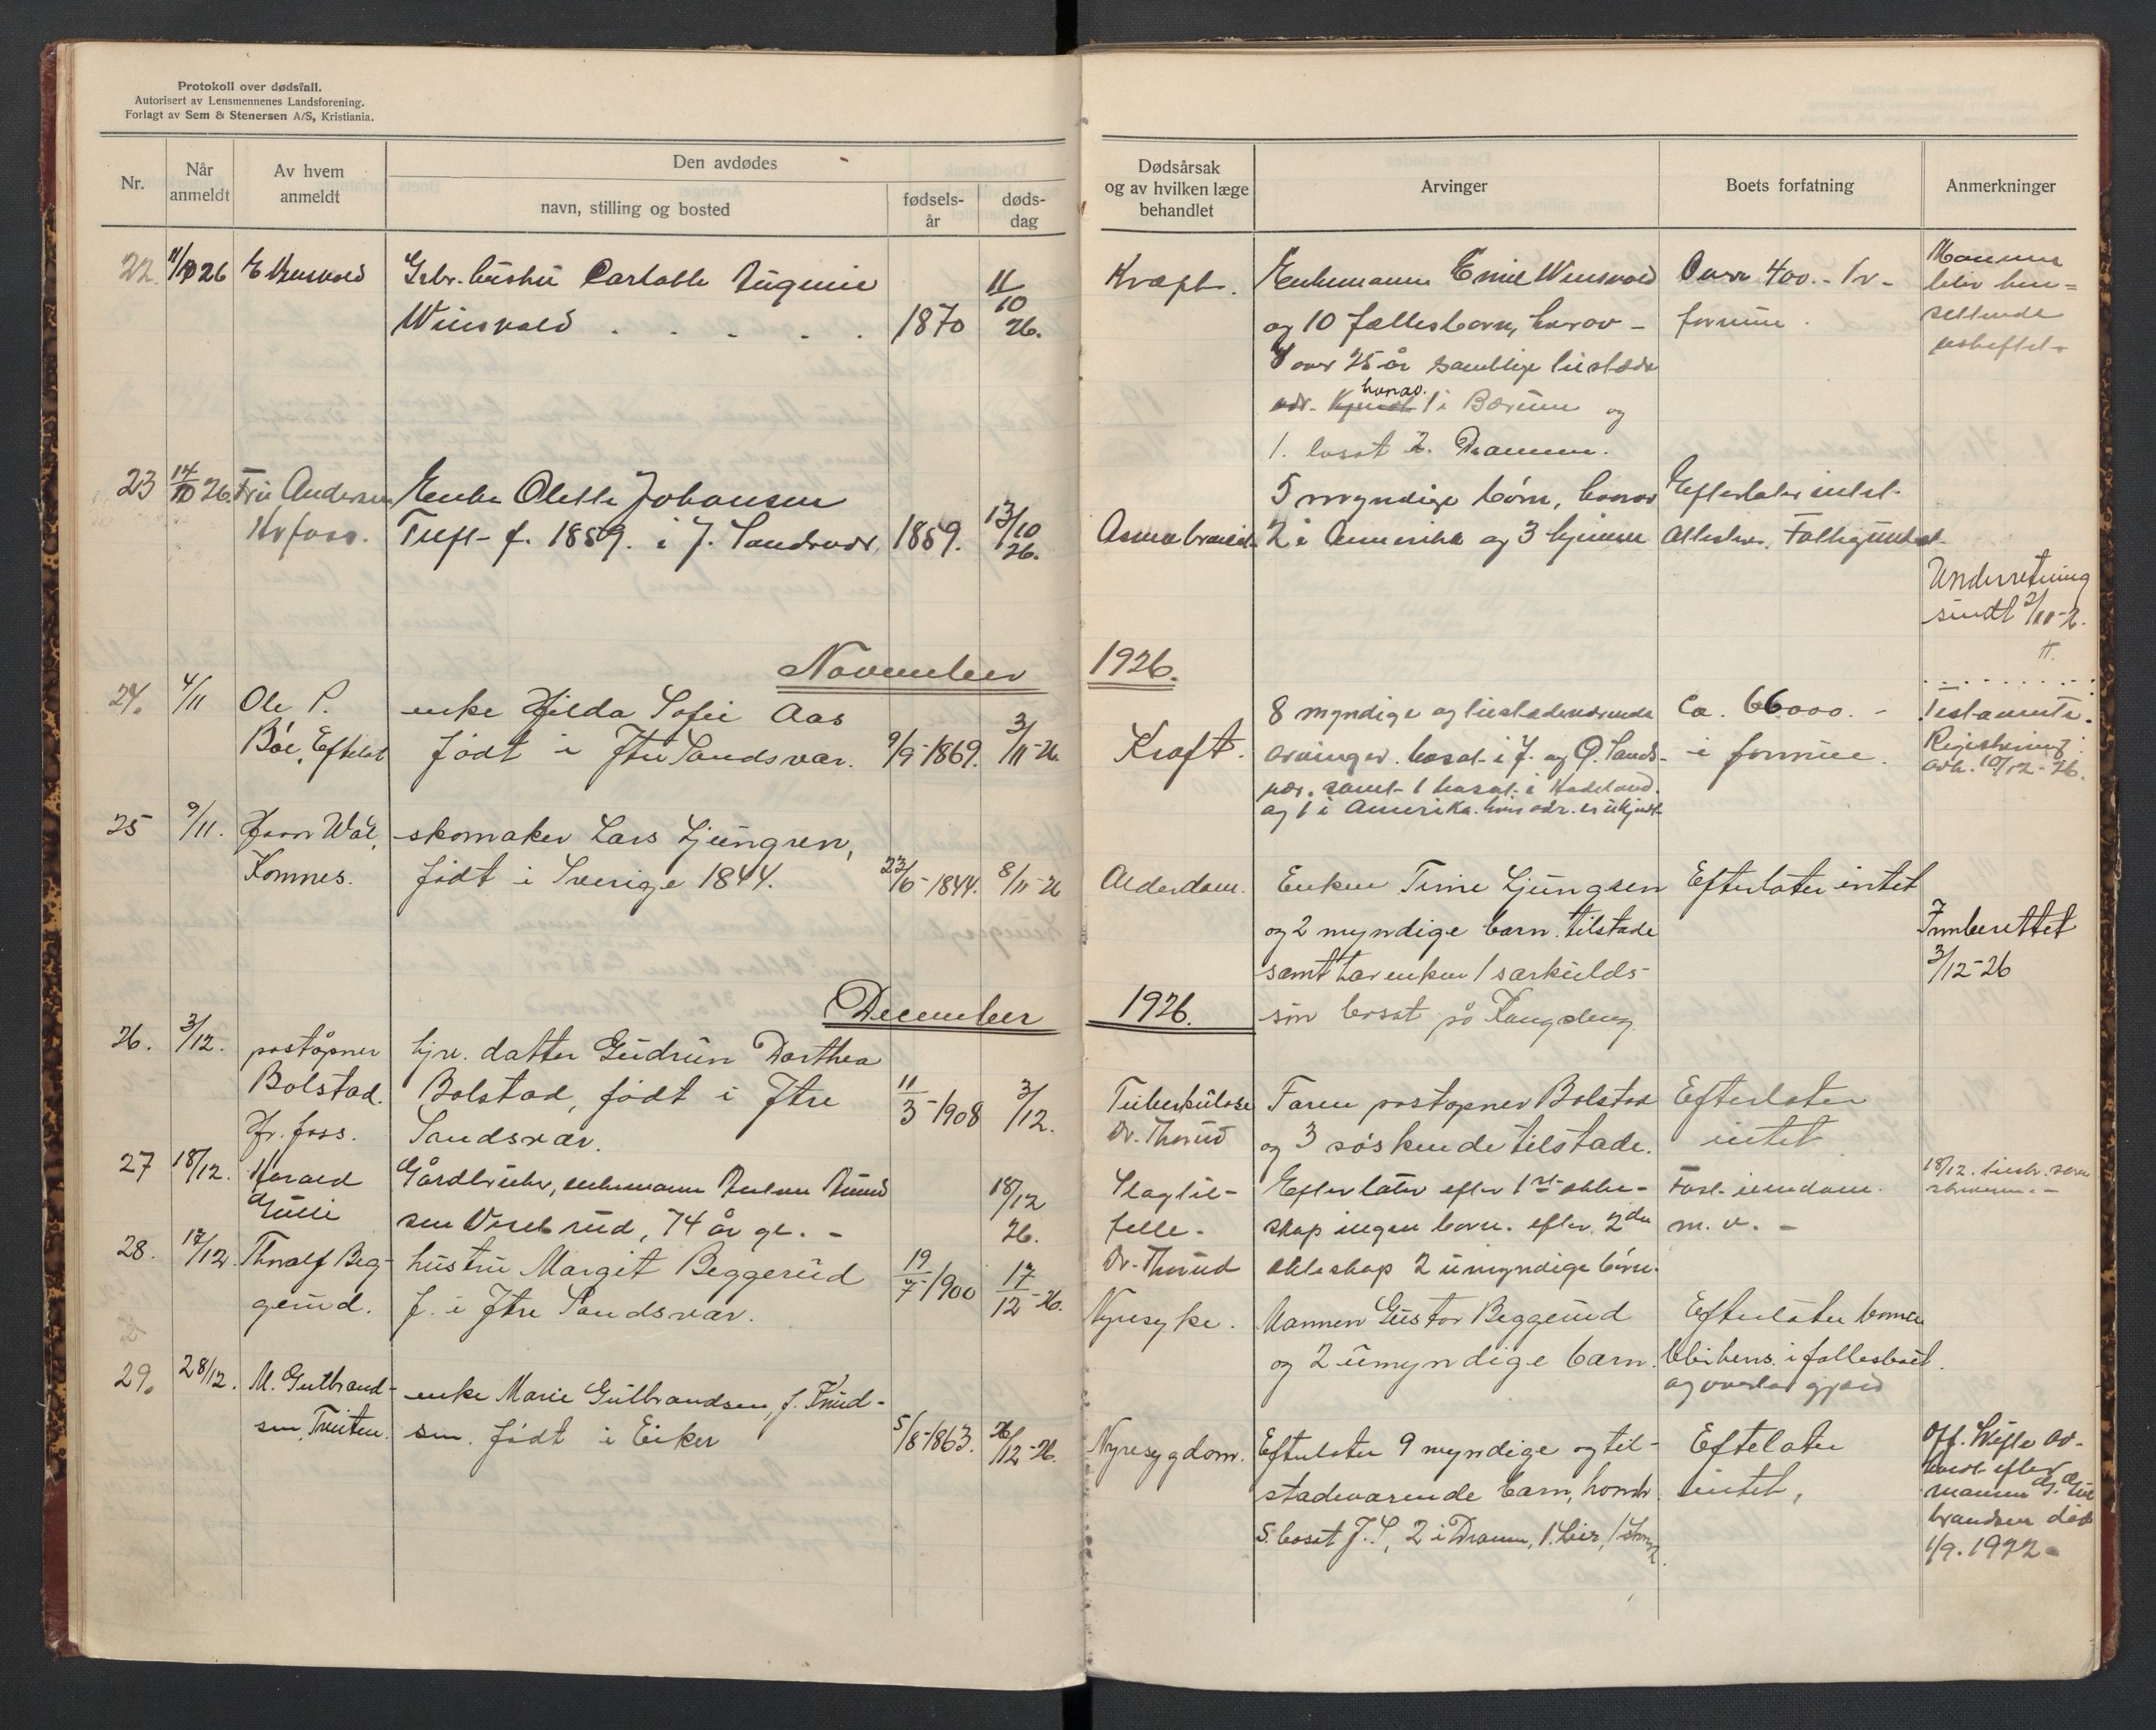 Protokoll over dødsfall.
Autorisert av Lensmennenes Landsforening.
Forlagt av Sem & Stenersen A/S, Kristiania.
Nr.
Når anmeldt
Av hvem anmeldt
Den avdødes
navn, stilling og bosted
fødsels-år
døds-dag
Dødsårsak og av hvilken læge behandlet
Arvinger
Boets forfatning
Anmerkninger
22. 11/10 26
11/10 26.
1870
Kræft.
Enkemann Emil
og 10 fællesbarn, herav
over 25 år samtlige tilstæde
hvorav 1 i Bærum og
1. bosat i Drammen.
Over 400.- kr.
formue.
23 14/10 26. Fru Andersen
Hvfoss.
Enke Olette Johansen
Tuft f. 1859. i J. Sandsvær.
1859.
13/10 26.
5 myndige børn, hvorav
2 i Amerika og 3 hjemme
Efterlater intet
Underretning
sendt 2/11-26.
November 1926.
24. 4/11 Ole P.
Bøe, Efteløt
enke Hilda Sofie Aas
født i Ytre Sandsvær.
9/9-1869. 3/11-26.
Kræft.
8 myndige og tilstedeværende
arvinger. bosat i J. og Ø. Sands-
vær. samt 1 bosat i Hadeland.
og 1 i Amerika. hvis adr. er ukjendt
Ca. 66000.-
i formue.
Testamente.
Registrering
avh. 10/12-26.
25 9/11.
Komnes.
skomaker Lars Ljungren,
født i Sverige 1844.
23/6-1844. 8/11-26
Alderdom.
Enken Trine Ljungren
og 2 myndige barn tilstæde
samt har enken 1 særkulds-
søn bosat på Kongsberg
Efterlater intet
Innberettet
3/12-26
December 1926.
26. 3/12. poståpner
Bolstad.
Hv. foss.
hjv. datter Gudrun Dorthea
Bolstad, født i Ytre
Sandsvær.
11/3-1908 3/12.
Tuberkulose
Dr. Thorud
Faren poståpner Bolstad
og 3 søskende tilstæde.
Efterlater
intet
27 18/12. Harald
Gårdbruker, enkemann
sen, 74 år gl. -
18/12 26.
Slagtil-
felle.
Dr. Thorud
Efterlater efter 1ste ekte-
skap ingen barn. efter 2det
ekteskap 2 umyndige børn.
Fast eiendom
m. v. -
18/12.
28. 17/12. Thoralf Beg-
gerud.
hustru Margit Beggerud
f. i Ytre Sandsvær.
19/7-1900 17/12-26.
Nyresyke.
Mannen Gustav Beggerud
og 2 umyndige barn.
Efterlater
i fællesboet.
29. 28/12. M. Gulbrand-
sen,
enke Marie Gulbrandsen, f. Knud-
sen. født i Eiker
5/8-1863. 26/12-26.
Nyresygdom.
Efterlater 9 myndige og til-
stedeværende barn, hvorav
5. bosat J. S., 2 i Dramm, 1 Lier,
Eftelater
intet,
Off. skifte av-
holdt efter
mannen G. Gul-
brandsen død
1/9. 1922.